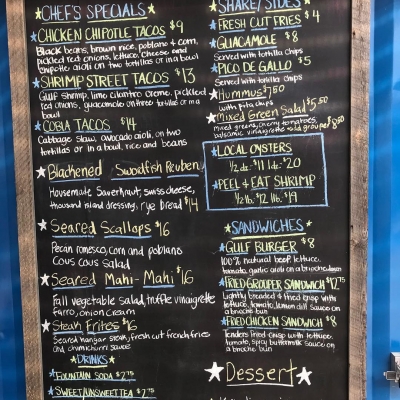 CHEF'S SPECIALS
CHICKEN CHIPOTLE TACOS $9
Black beans, brown rice, poblano & corn,
pickled red onions, lettuce, cheese and
chipotle aioli on two tortillas or in a bowl
SHRIMP STREET TACOS $13
Gulf shrimp, lime cilantro creme, pickled
red onions, guacamole on three tortillas or in a
bowl
COBIA TACOS $14
Cabbage slaw, avocado aioli, on two
tortillas or in a bowl, rice and beans
Blackened Swordfish Reuben
Housemade Sauerkraut, swiss cheese,
thousand island dressing, rye bread $14
Seared Scallops $16
Pecan romesco, corn and poblano
Cous cous Salad
Seared Mahi-Mahi $16
Fall vegetable salad, truffle vinaigrette
farro, onion cream
Steak Frites $16
Seared hangar steak, fresh cut french fries
and chimichurri sauce
DRINKS
FOUNTAIN SODA $2.75
SWEET/UNSWEET TEA $2.75
SHARE/SIDES
FRESH CUT FRIES $4
GUACAMOLE $8
Served with tortilla chips
PICO DE GALLO $5
Served with tortilla chips
Hummus $7.50
with pita chips
Mixed Green Salad $5.50
Mixed greens, cherry tomatoes,
balsamic vinaigrette add grouper 8.50
LOCAL OYSTERS
1/2 dz. $11 1 dz. $20
PEEL & EAT SHRIMP
1/2 lb. $12 1 lb. $19
SANDWICHES
GULF BURGER $8
100% natural beef, lettuce,
tomato, garlic aioli on a brioche bun
FRIED GROUPER SANDWICH $17.75
Lightly breaded & fried crisp with
lettuce, tomato, lemon dill sauce on
a brioche bun
FRIED CHICKEN SANDWICH $8
Tenders fried crisp with lettuce,
tomato, spicy buttermilk sauce on
a brioche bun
Dessert